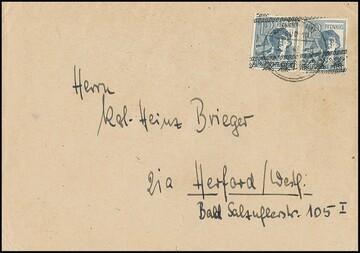 PFENNIG
Herrn
Karl-Heinz Brieger
Herford/Westf.
Bad Salzuflerstr. 105 I